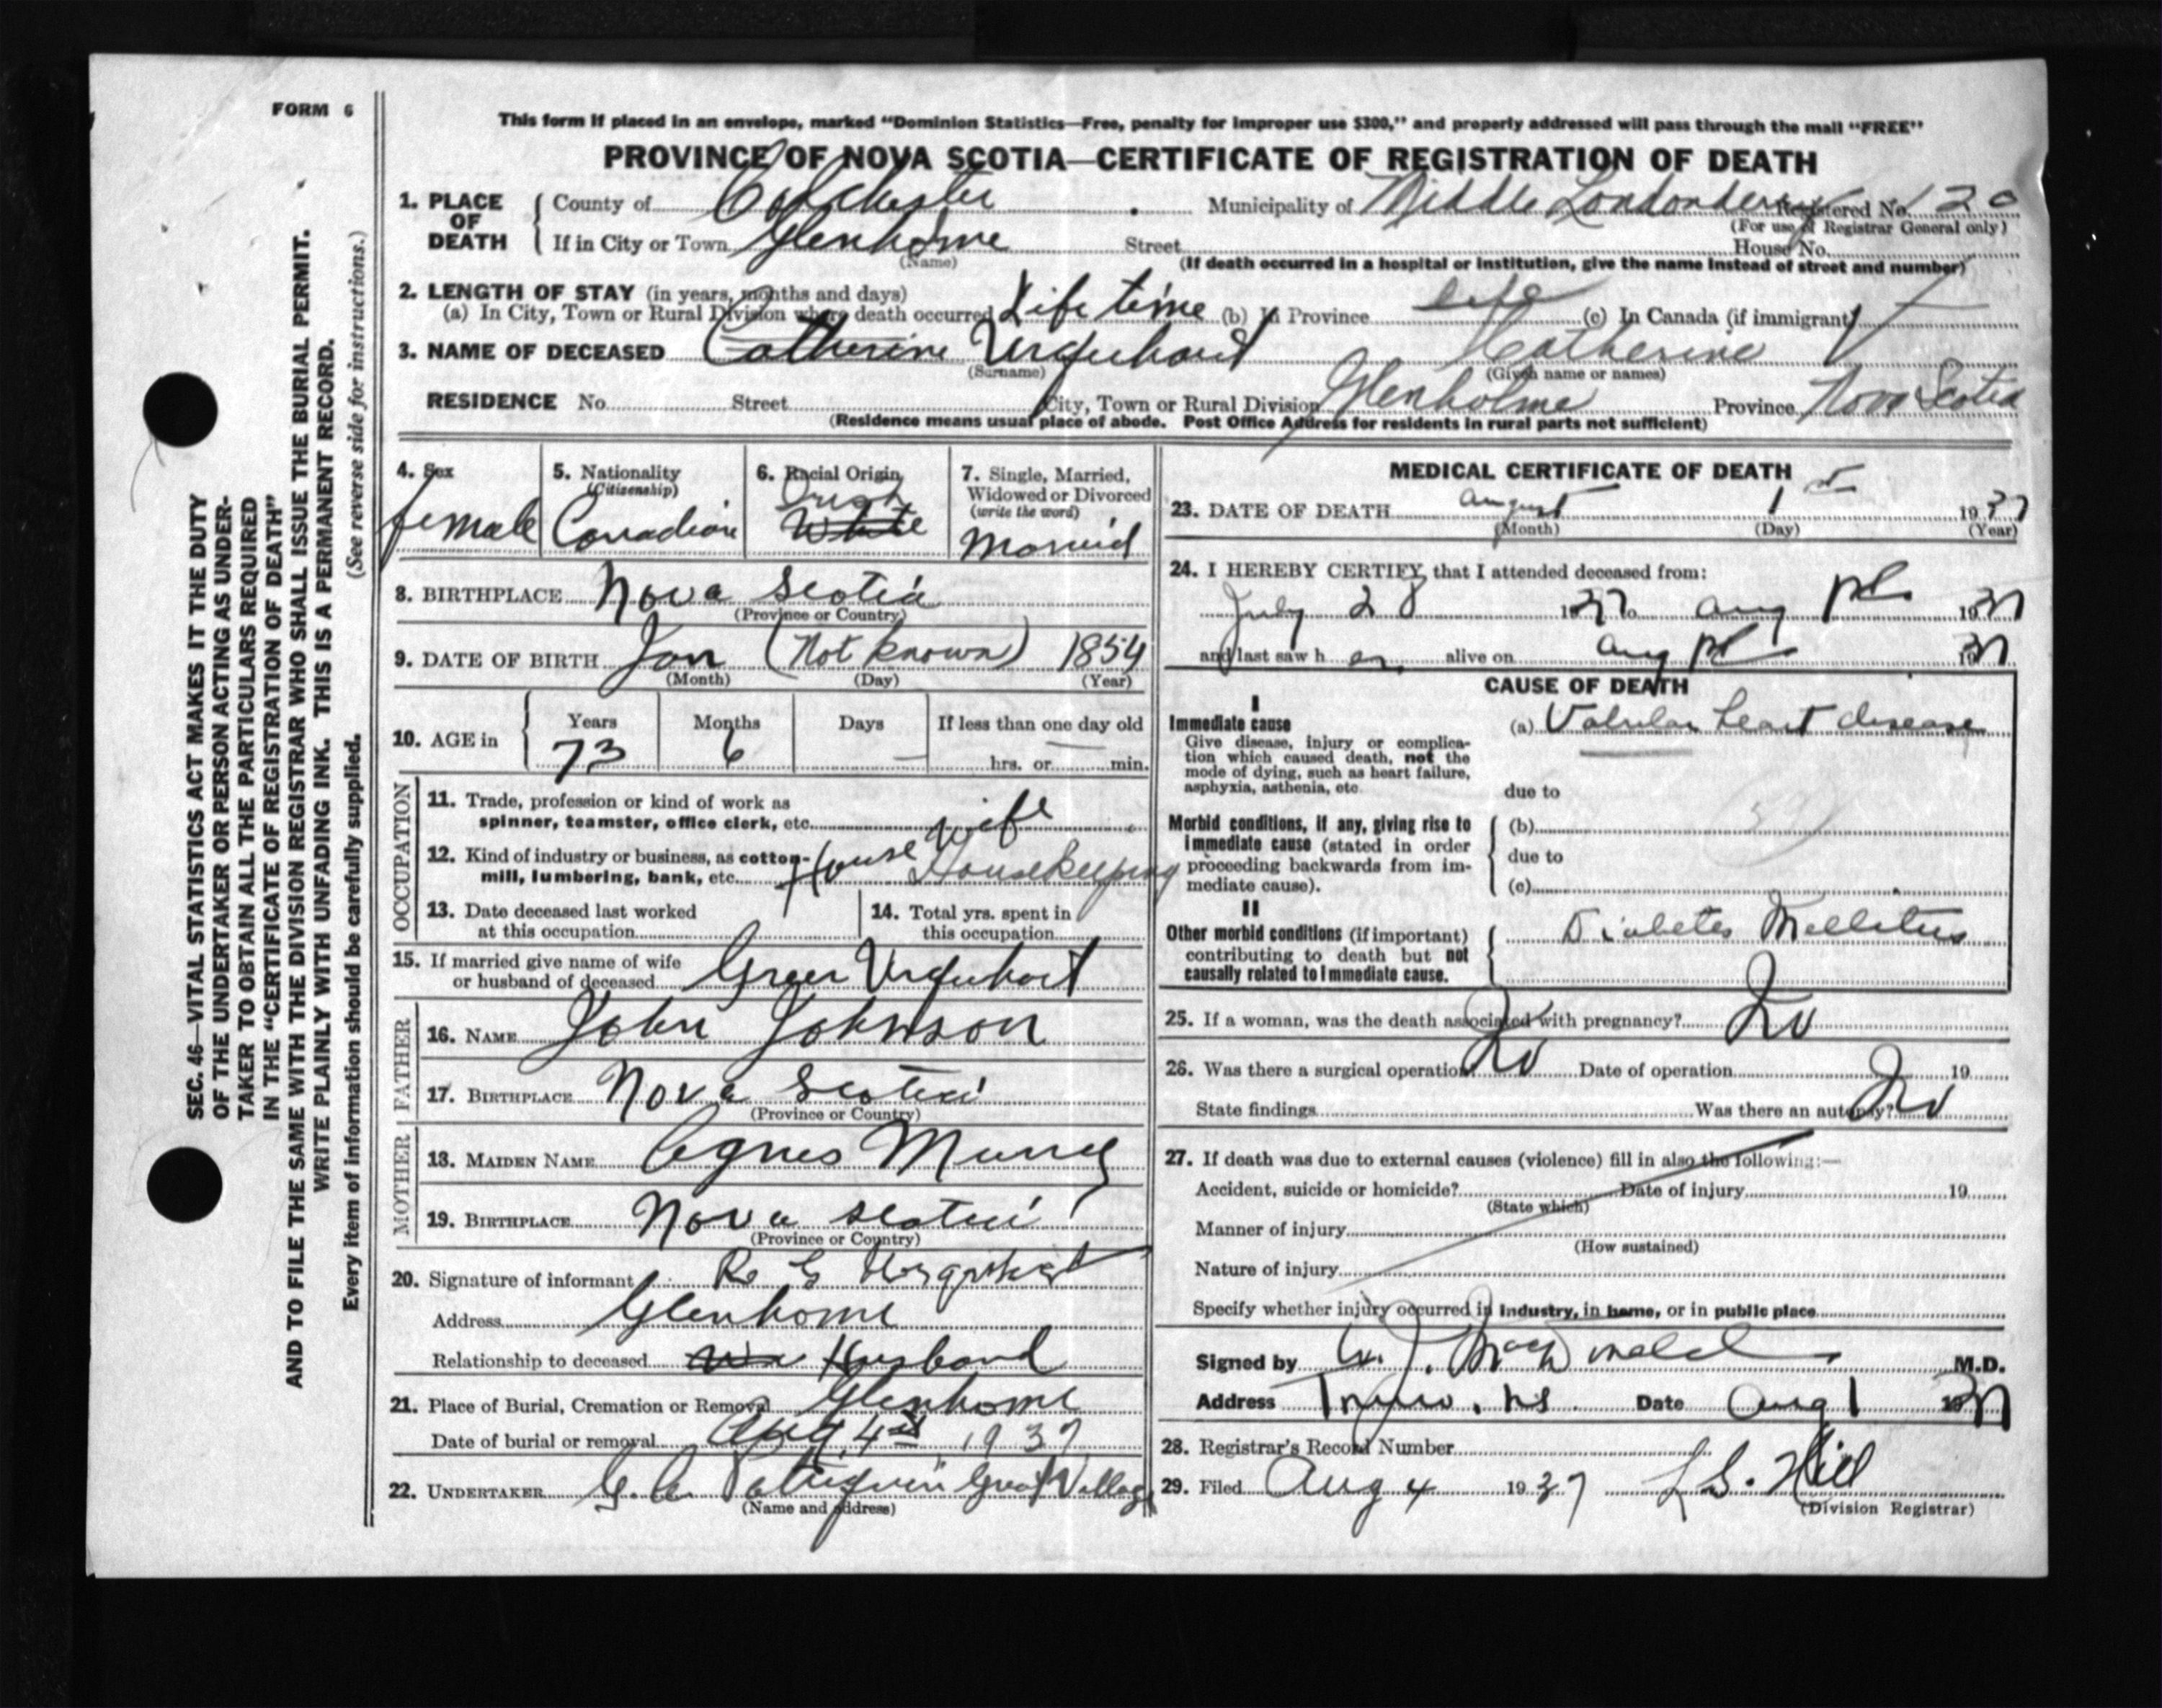 FORM 6
This form if placed in an envelope, marked "Dominion Statistics—Free, penalty for improper use $300," and properly addressed will pass through the mail "FREE"
PROVINCE OF NOVA SCOTIA—CERTIFICATE OF REGISTRATION OF DEATH
1. PLACE OF DEATH { County of Colchester Municipality of Middle Londonderry Registered No. 120
(For use of Registrar General only)
If in City or Town Glenholme Street House No.
(Name)
(If death occurred in a hospital or institution, give the name instead of street and number)
2. LENGTH OF STAY (in years, months and days)
(a) In City, Town or Rural Division where death occurred Life time (b) In Province life (c) In Canada (if immigrant)
3. NAME OF DECEASED Catherine Urquhart Catherine
(Surname) (Given name or names)
RESIDENCE No. Street City, Town or Rural Division Glenholme Province Nova Scotia
(Residence means usual place of abode. Post Office Address for residents in rural parts not sufficient)
4. Sex
female
5. Nationality
(Citizenship)
Canadian
6. Racial Origin
Irish
White
7. Single, Married,
Widowed or Divorced
(write the word)
Married
8. BIRTHPLACE Nova Scotia
(Province or Country)
9. DATE OF BIRTH Jan (Not known) 1854
(Month) (Day) (Year)
10. AGE in { Years Months Days If less than one day old
73 6 — hrs. or min.
OCCUPATION
11. Trade, profession or kind of work as
spinner, teamster, office clerk, etc.
House wife
12. Kind of industry or business, as cotton-
mill, lumbering, bank, etc. Housekeeping
13. Date deceased last worked
at this occupation
14. Total yrs. spent in
this occupation
15. If married give name of wife
or husband of deceased Greer Urquhart
FATHER
16. NAME John Johnson
17. BIRTHPLACE Nova Scotia
(Province or Country)
MOTHER
18. MAIDEN NAME Agnes Murray
19. BIRTHPLACE Nova Scotia
(Province or Country)
20. Signature of informant R G Urquhart
Address Glenhome
Relationship to deceased Husband
21. Place of Burial, Cremation or Removal Glenhome
Date of burial or removal Aug 4th 1937
22. UNDERTAKER Great Village
(Name and address)
MEDICAL CERTIFICATE OF DEATH
23. DATE OF DEATH August 1st 1937
(Month) (Day) (Year)
24. I HEREBY CERTIFY, that I attended deceased from:
July 28 1937 to Aug 1st 1937
and last saw her alive on Aug 1st 1937
CAUSE OF DEATH
I
Immediate cause
Give disease, injury or complica-
tion which caused death, not the
mode of dying, such as heart failure,
asphyxia, asthenia, etc.
(a) Valvular heart disease
due to
Morbid conditions, if any, giving rise to
immediate cause (stated in order
proceeding backwards from im-
mediate cause).
(b)
due to
(c)
II
Other morbid conditions (if important)
contributing to death but not
causally related to immediate cause.
Diabetes Mellitus
25. If a woman, was the death associated with pregnancy? No
26. Was there a surgical operation No Date of operation 19
State findings Was there an autopsy? No
27. If death was due to external causes (violence) fill in also the following:—
Accident, suicide or homicide? Date of injury 19
(State which)
Manner of injury
(How sustained)
Nature of injury
Specify whether injury occurred in industry, in home, or in public place
Signed by J. MacDonald M.D.
Address Truro, NS Date Aug 1 1937
28. Registrar's Record Number
29. Filed Aug 4 1937 L S. Hill
(Division Registrar)
SEC. 46—VITAL STATISTICS ACT MAKES IT THE DUTY
OF THE UNDERTAKER OR PERSON ACTING AS UNDER-
TAKER TO OBTAIN ALL THE PARTICULARS REQUIRED
IN THE "CERTIFICATE OF REGISTRATION OF DEATH"
AND TO FILE THE SAME WITH THE DIVISION REGISTRAR WHO SHALL ISSUE THE BURIAL PERMIT.
WRITE PLAINLY WITH UNFADING INK. THIS IS A PERMANENT RECORD.
Every item of information should be carefully supplied. (See reverse side for instructions.)